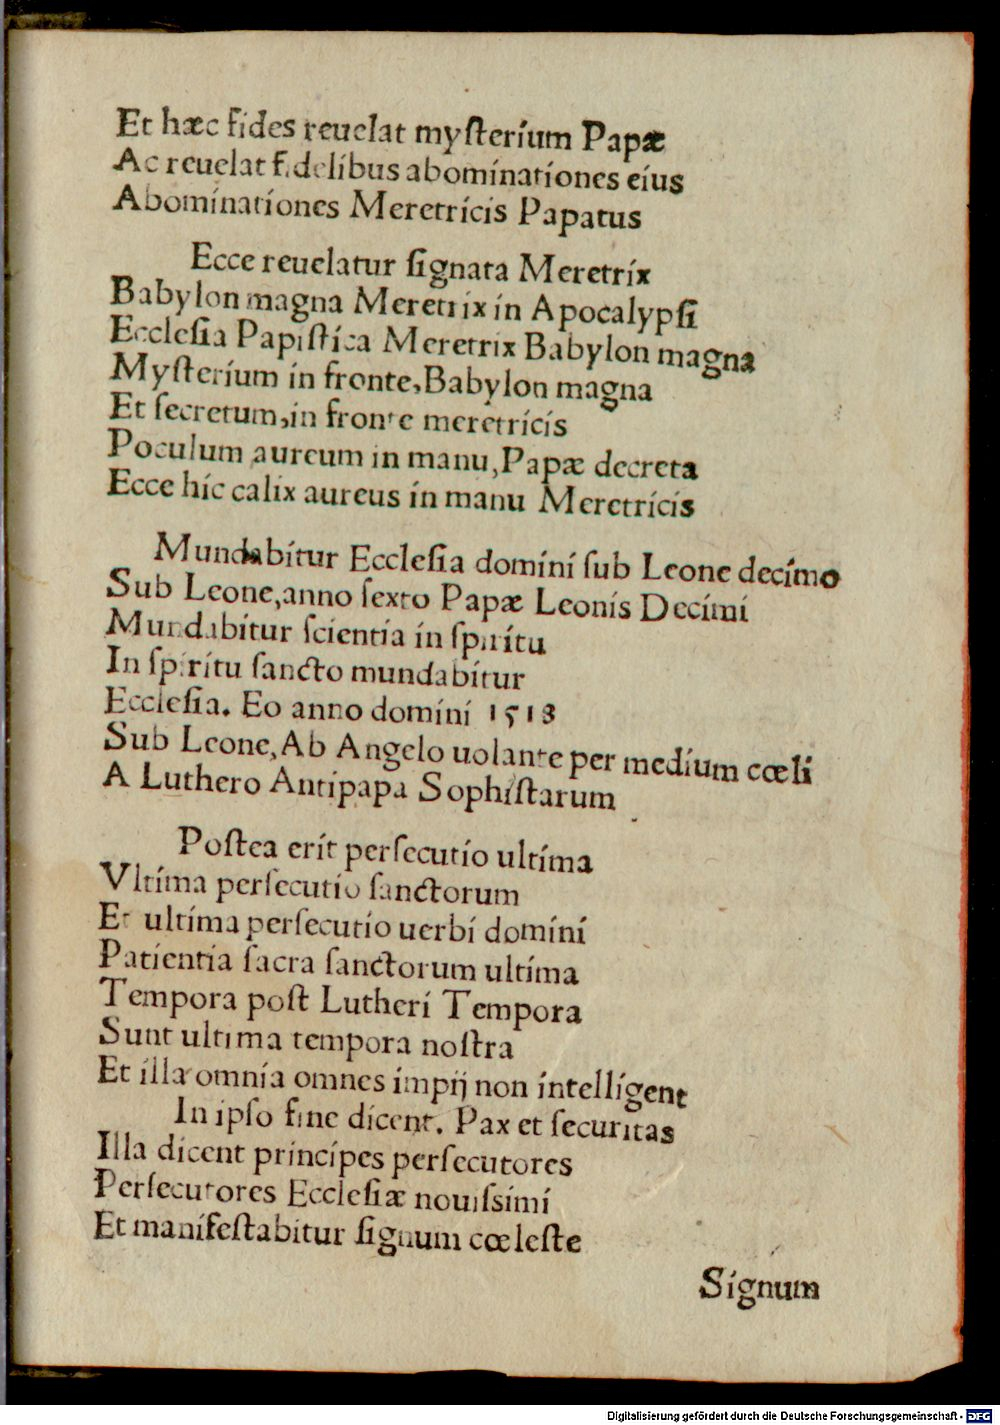 Et hæc fides reuelat mysterium Papæ
Ac reuelat fidelibus abominationes eius
Abominationes Meretricis Papatus
Ecce reuelatur signata Meretrix
Babylon magna Meretrix in Apocalypsi
Ecclesia Papistica Meretrix Babylon magna
Mysterium in fronte, Babylon magna
Et secretum, in fronte meretricis
Poculum aureum in manu, Papæ decreta
Ecce hic calix aureus in manu Meretricis
Mundabitur Ecclesia domini sub Leone decimo
Sub Leone, anno sexto Papæ Leonis Decimi
Mundabitur scientia in spiritu
In spiritu sancto mundabitur
Ecclesia. Eo anno domini 1518
Sub Leone, Ab Angelo uolante per medium cœli
A Luthero Antipapa Sophistarum
Postea erit persecutio ultima
Vltima persecutio sanctorum
Et ultima persecutio uerbi domini
Patientia sacra sanctorum ultima
Tempora post Lutheri Tempora
Sunt ultima tempora nostra
Et illa omnia omnes impij non intelligent
In ipso fine dicent. Pax et securitas
Illa dicent principes persecutores
Persecutores Ecclesiæ nouissimi
Et manifestabitur signum cœleste
Signum
Digitalisierung gefördert durch die Deutsche Forschungsgemeinschaft - DFG